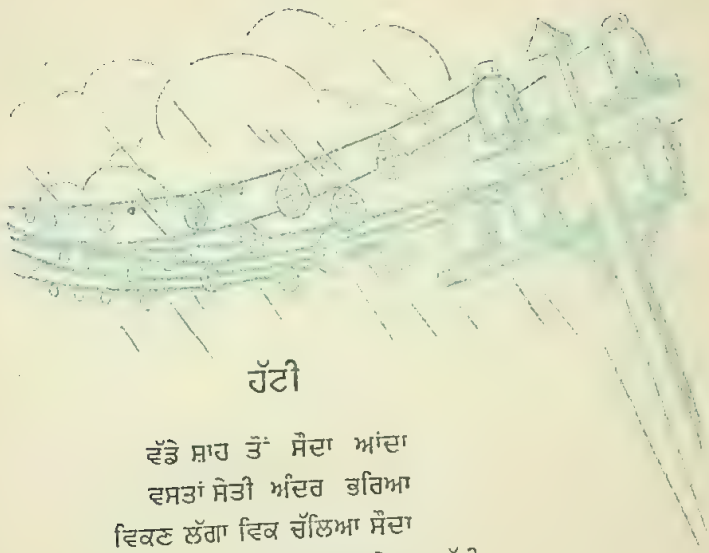 ਹੱਟੀ
ਵੱਡੇ ਸ਼ਾਹ ਤੋਂ ਸੌਦਾ ਆਂਦਾ
ਵਸਤਾਂ ਸੇਤੀ ਅੰਦਰ ਭਰਿਆ
ਵਿਕਣ ਲੱਗਾ ਵਿਕ ਚੱਲਿਆ ਸੌਦਾ